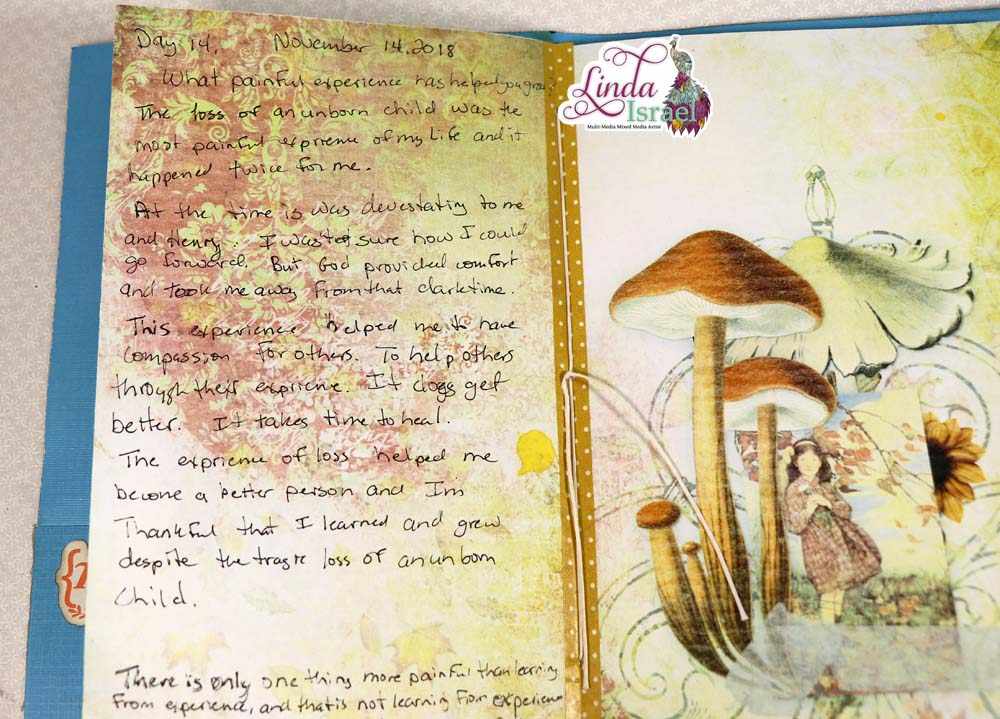 Day 14, November 14, 2018
What painful experience has helped you grow?
The loss of an unborn child was the
most painful exprience of my Life and it
happened twice for me.
At the time is was devestating to me
and Henry. I wasn't sure how I could
go forward. But God provided comfort
and took me away from that dark time.
This experience helped me to have
compassion for others. To help others
through their exprience. It does get
better. It takes time to heal.
The exprience of loss helped me
become a better person and I'm
Thankful that I learned and grew
despite the tragic loss of an unborn
Child.
There is only one thing more painful than learning
From experience, and that is not learning From experience
Linda
Israel
Multi-Media Mixed Media Artist